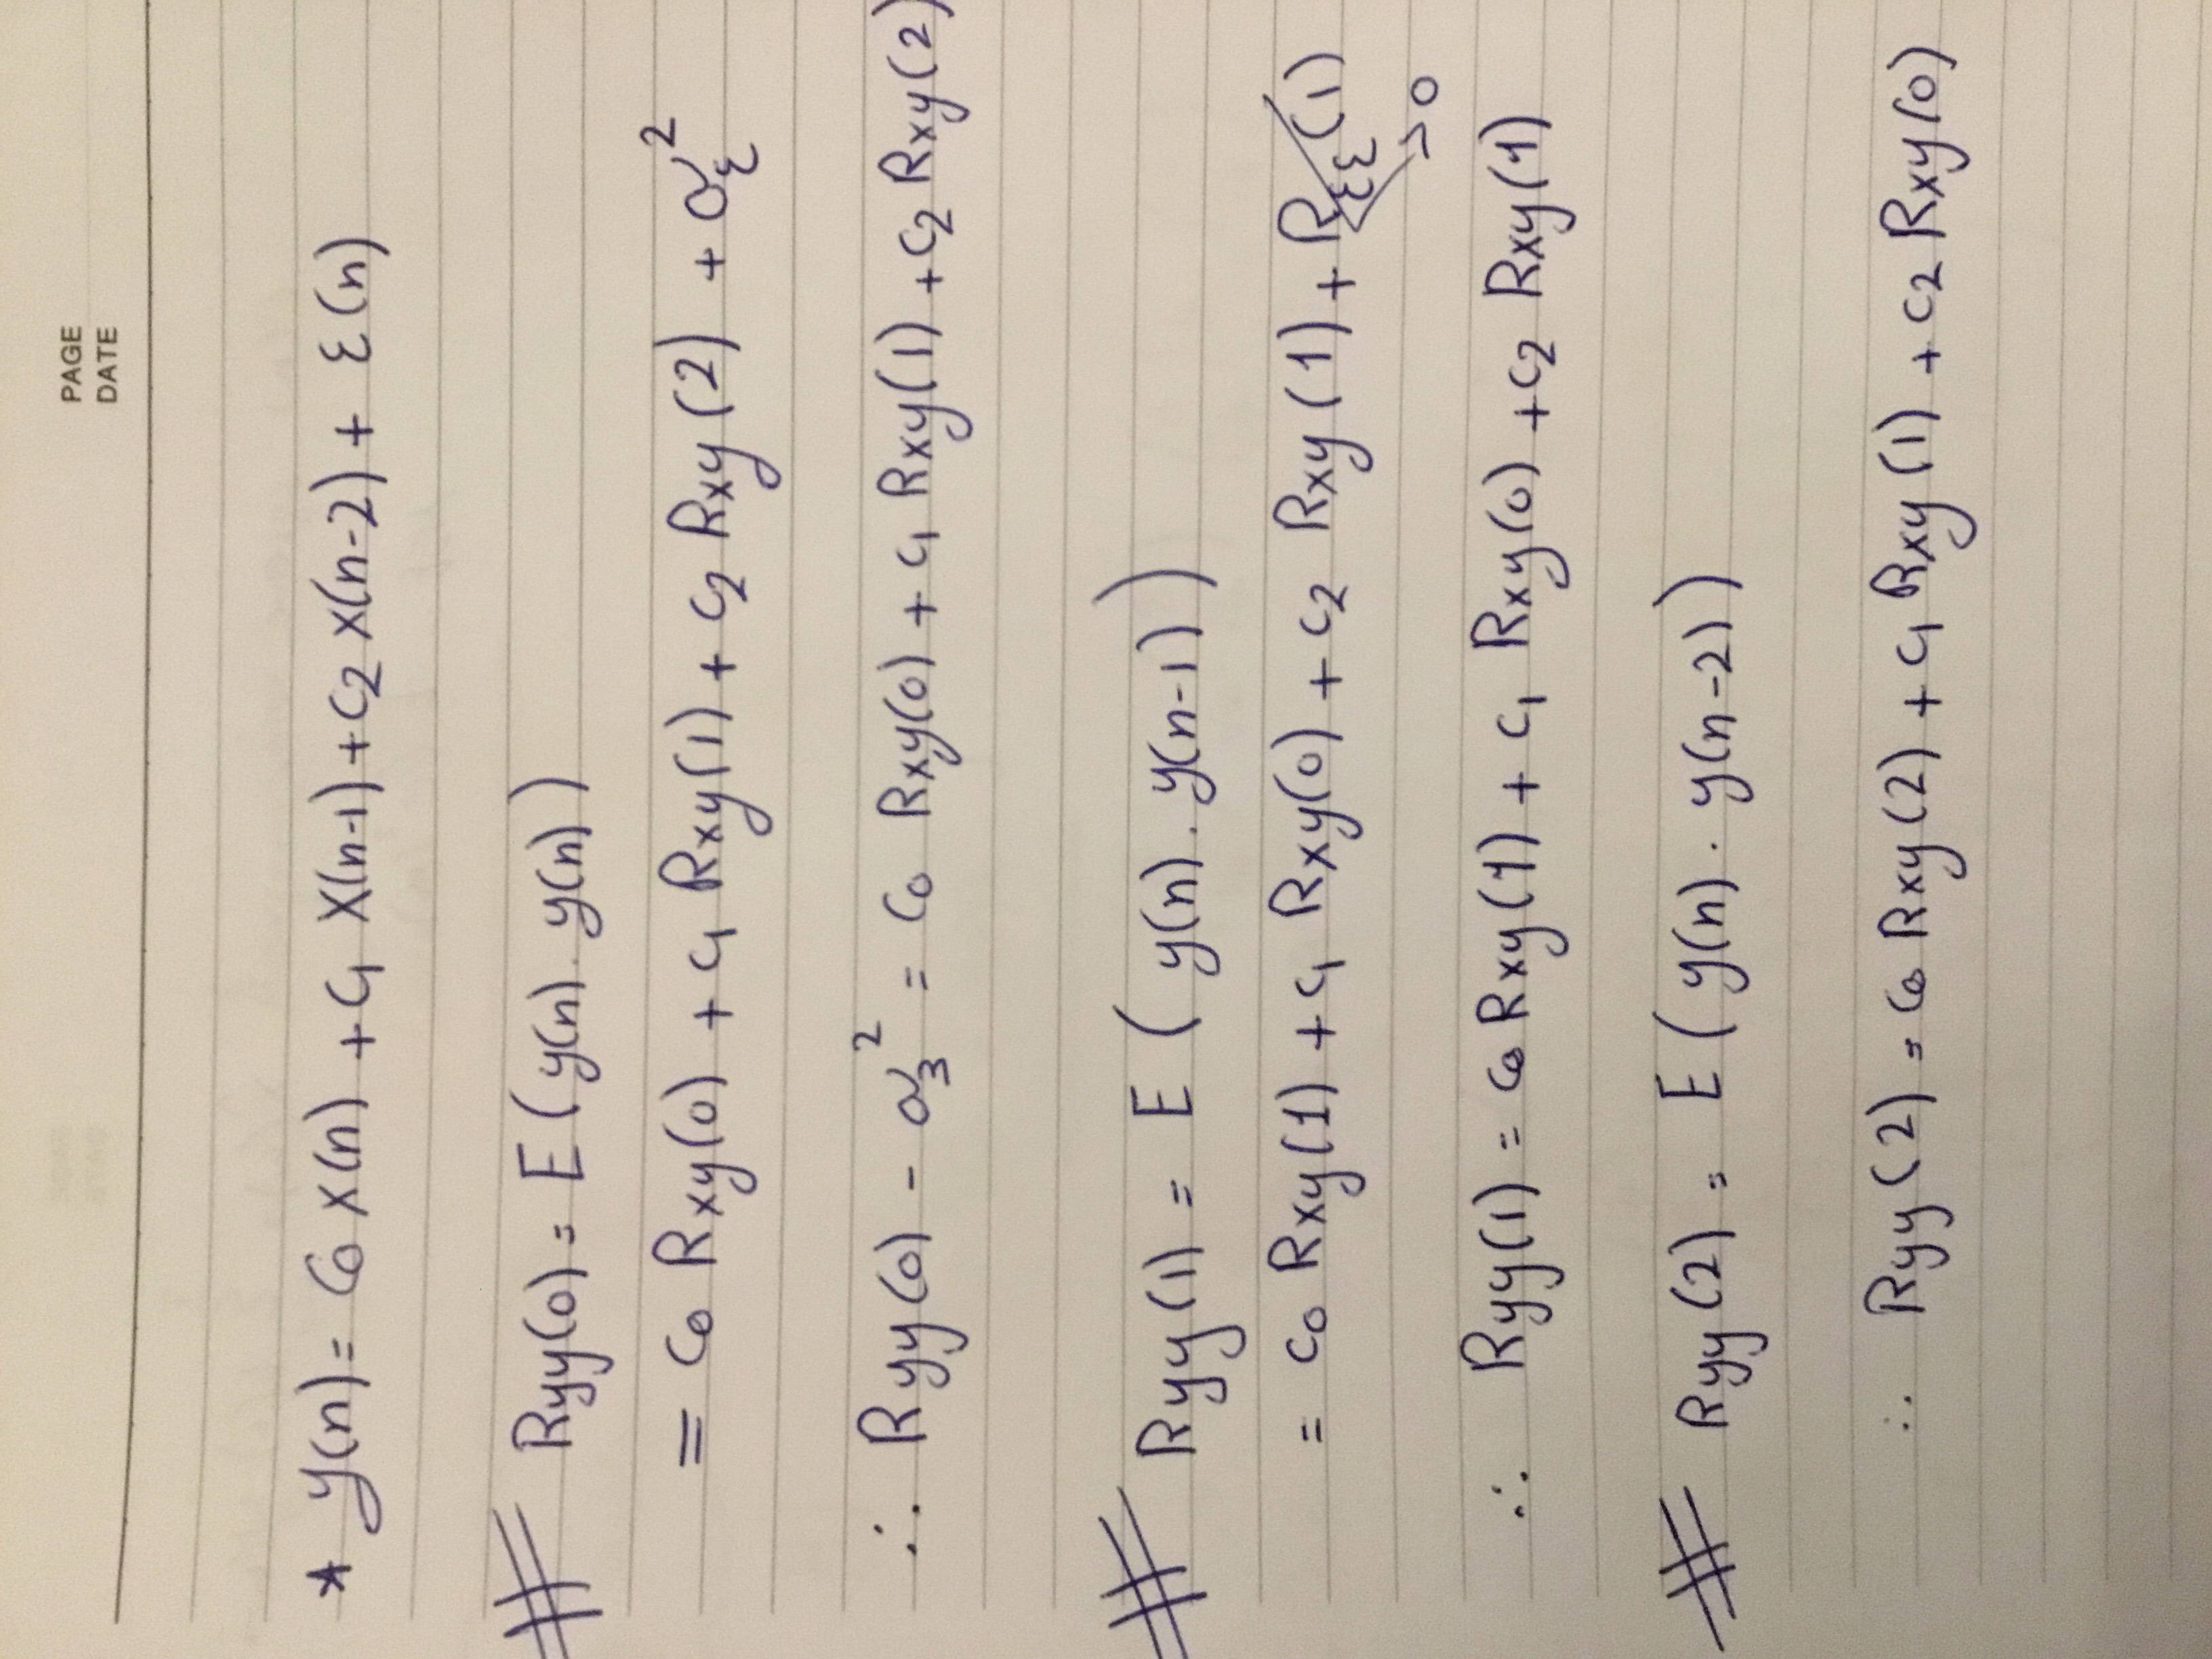 PAGE
DATE
* y(n) = C0 X(n) + C1 X(n-1) + C2 X(n-2) + ε(n)
# Ryy(0) = E(y(n). y(n))
= C0 Rxy(0) + C1 Rxy(1) + C2 Rxy(2) + σε²
∴ Ryy(0) - σ3² = C0 Rxy(0) + C1 Rxy(1) + C2 Rxy(2)
# Ryy(1) = E(y(n). y(n-1))
= C0 Rxy(1) + C1 Rxy(0) + C2 Rxy(1) + Rεε(1)
> 0
∴ Ryy(1) = C0 Rxy(1) + C1 Rxy(0) + C2 Rxy(1)
# Ryy(2) = E(y(n). y(n-2))
∴ Ryy(2) = C0 Rxy(2) + C1 Rxy(1) + C2 Rxy(0)